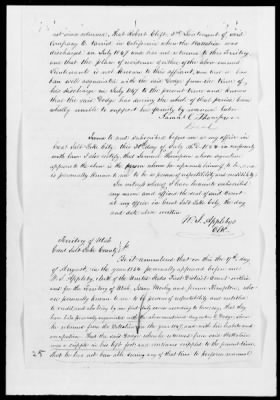 not since returned, that Robert Clift, 3rd Lieutenant of said
Company C. tarried in California when the Battalion were
discharged in July 1847 and has not returned to this Territory
and that the place of residence of either of the above named
Lieutenants is not known to this affiant, and that he has
been well acquainted with the said Dodge from the time of
his discharge in July 1847 to the present time and knows
that the said Dodge has during the whole of that period been
wholly unable to support his family by manual labor
Samuel Thompson
Sworn to and subscribed before me at my office in
Great Salt Lake City, this day of July 1854
with him I also certify, that Samuel Thompson whose signature
appears to the above is the person whom he represents himself to be, and
is personally known to me to be a person of respectability and credibility
In witness whereof I have hereunto subscribed
my name and affixed the seal of said Court
at my office in Great Salt Lake City the day
and date above written
W. I. Appleby
Clk.
Territory of Utah
Great Salt Lake County
Be it remembered that on this the 9th day
of August, in the year 1854 personally appeared before me
W. I. Appleby, Clerk of the United States First District Court within
and for the Territory of Utah, Isaac and James who
are personally known to me to be persons of respectability and entitled
to credit and who being by me first duly sworn according to law say, that they
have been personally acquainted with the aforementioned Augustus E. Dodge, since
he returned from the Battalion in the year 1847, and with his habits and
occupation. That the said Dodge when he returned from said Battalion
was a cripple in his left foot and continues crippled to the present time,
that he has not been able during any of that time to perform manual
25